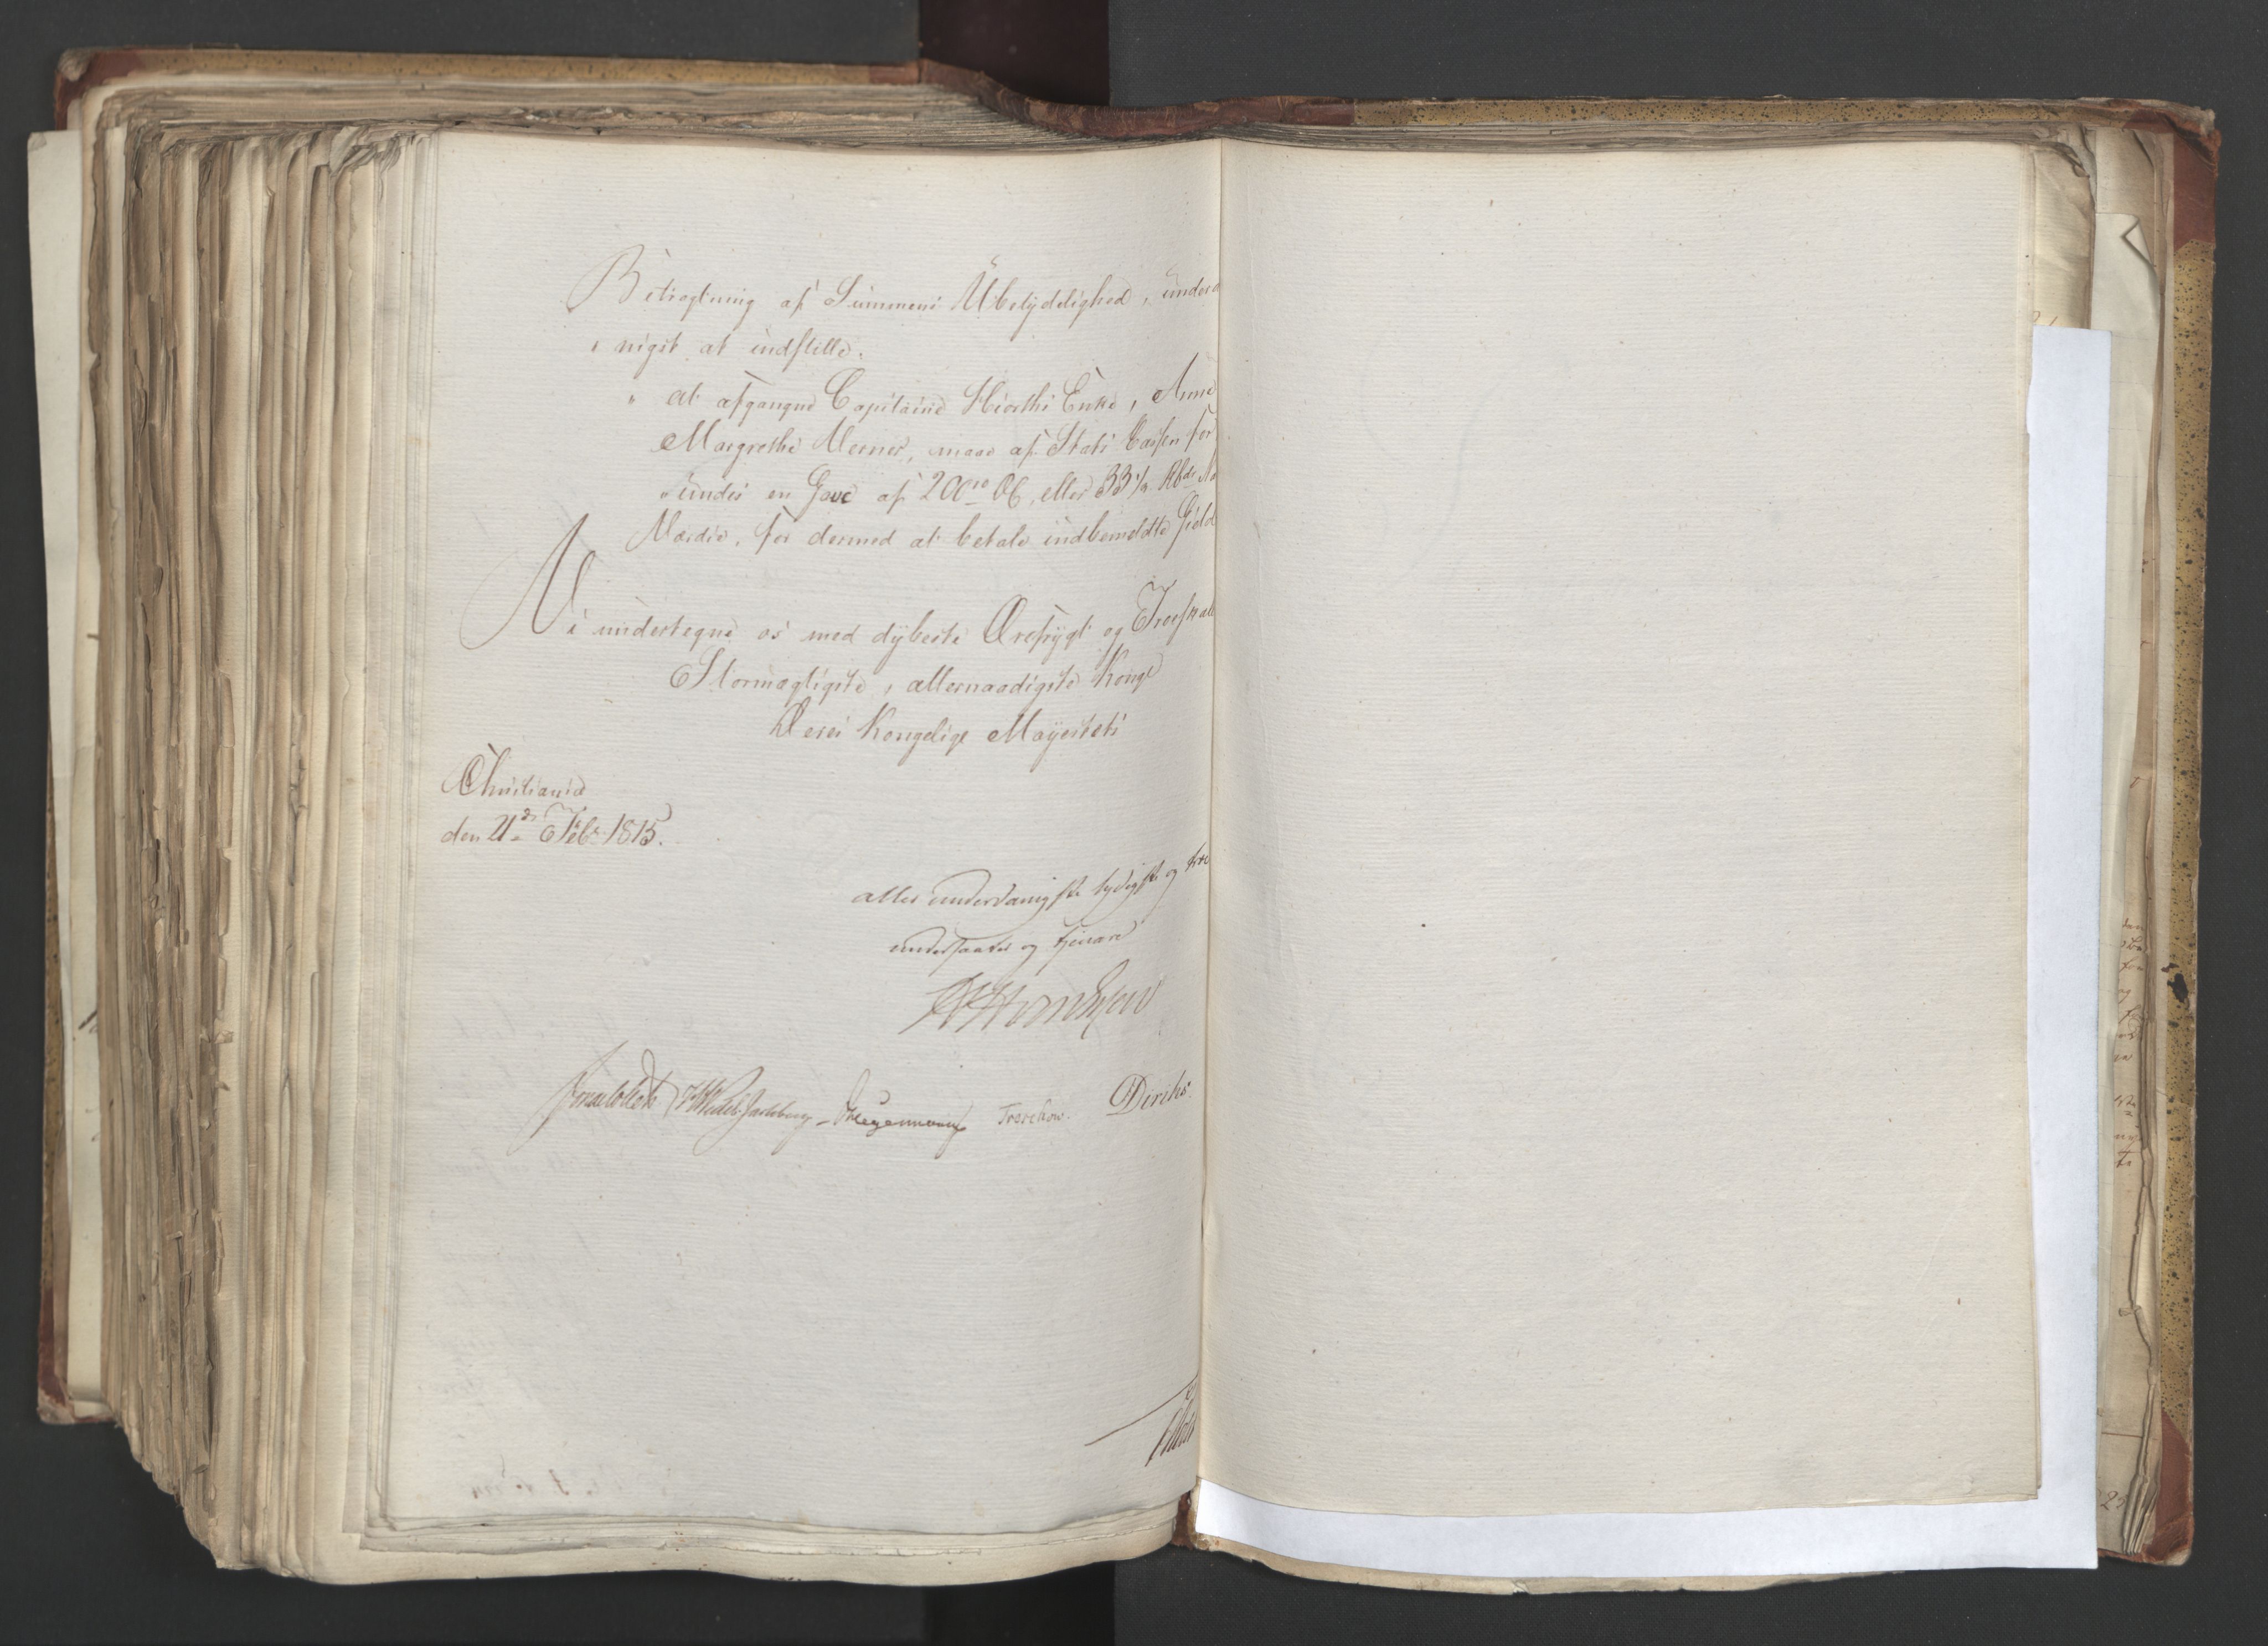 Betragtning af Summens Ubetydelighed, underd
nigst at indstille.
" at afgangne Capitaine Hiorths Enke, Anne
Margrethe Werner, maae af Stats Cassen for
"undes en Gave af 200 eller 33 1/3 Rbdr
Værdie, for dermed at betale indbemeldte Gield
Vi undertegne os med dybeste Ærefrygt og Troeskab
Stormægtigste, allernaadigste Konge
Deres Kongelige Mayestets
Christiania
den 21de Febr. 1815.
aller underdanigste lydigste og troe
undersaatter og tjenere
Sommerhielm HWedel Jarlsberg DHegermann Treschow. Diriks.
Holst